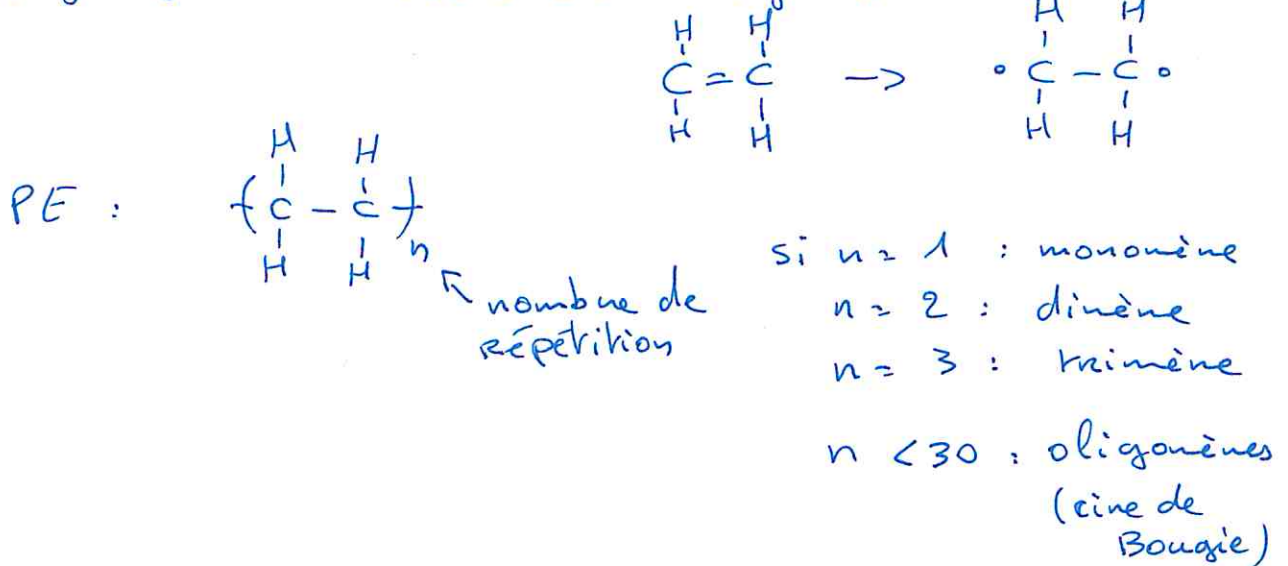 H H H H
C = C -> • C - C •
H H H H
H H
PE : ( C - C )n
H H
nombre de
répétition
si n = 1 : monomère
n = 2 : dimère
n = 3 : trimère
n < 30 : oligomères
(cire de
Bougie)